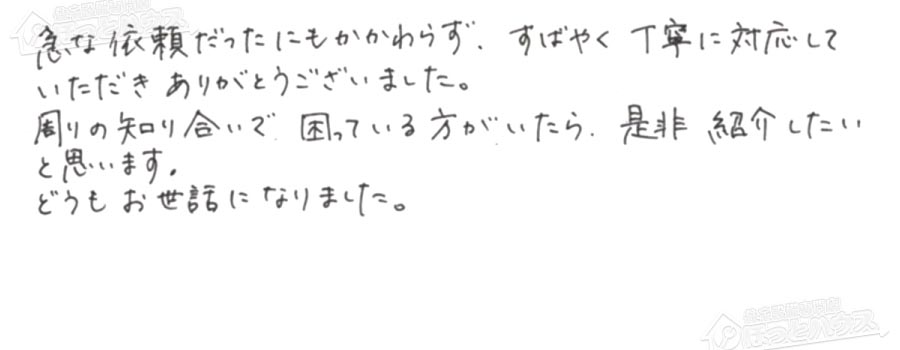 急な依頼だったにもかかわらず、すばやく丁寧に対応して
いただきありがとうございました。
周りの知り合いで、困っている方がいたら、是非紹介したい
と思います。
どうもお世話になりました。
ほっとハウス